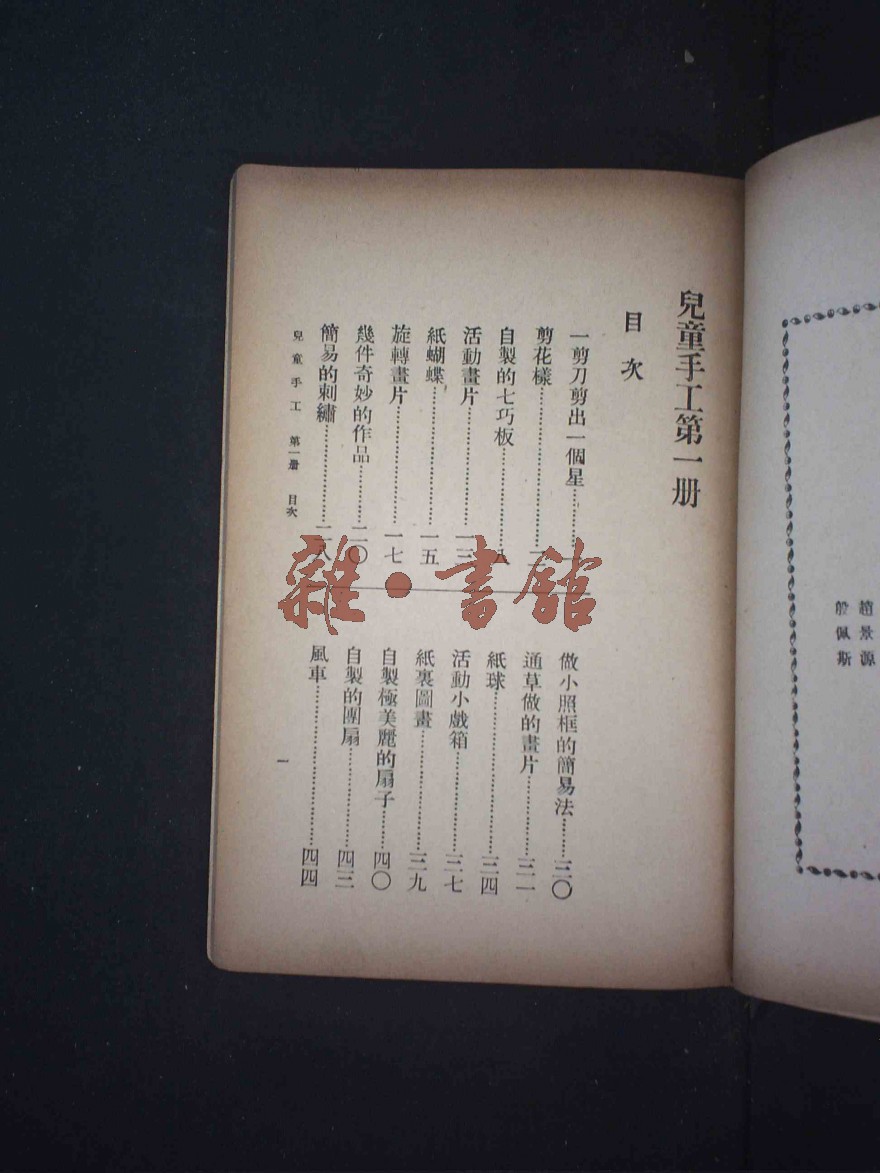 趙景源
殷佩斯
兒童手工第一册
目次
一剪刀剪出一個星…………一
剪花樣…………
自製的七巧板…………八
活動畫片…………一三
紙蝴蝶…………一五
旋轉畫片…………一七
幾件奇妙的作品…………二〇
簡易的刺繡…………二八
做小照框的簡易法…………三〇
通草做的畫片…………三一
紙球…………三四
活動小戲箱…………三七
紙裏圖畫…………三九
自製極美麗的扇子…………四〇
自製的團扇…………四三
風車…………四四
兒童手工 第一册 目次
一
雜·書館